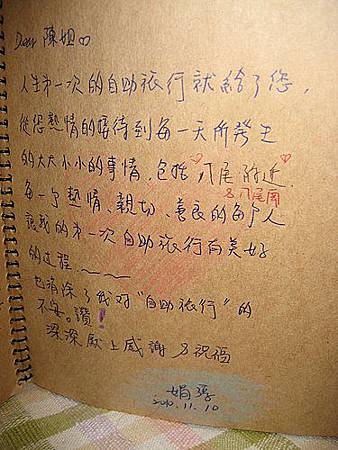 Dear 陳姐
人生第一次的自助旅行就給了您,
從您熱情的接待到每一天所發生
的大大小小的事情,包括 八尾附近
及八尾南
每一個熱情、親切、善良的每個人
讓我的第一次自助旅行有美好
的過程
也消除了我对“自助旅行”的
不安。讚!
深深獻上感謝 及祝福
娟
2010.11.10